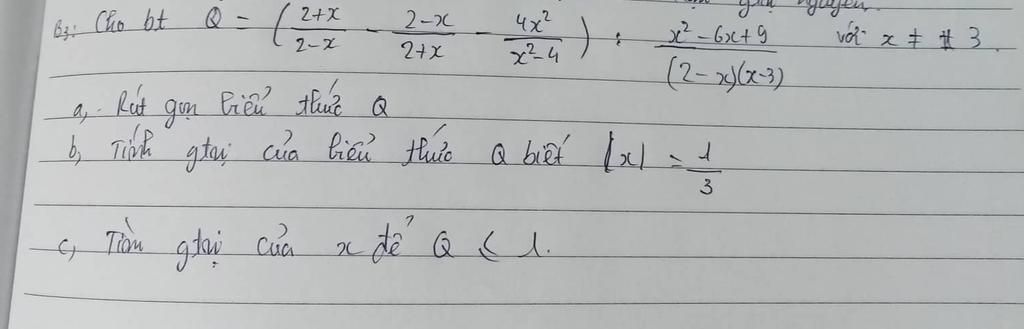 B3: Cho bt Q = (2+x/2-x - 2-x/2+x - 4x²/x²-4) : x²-6x+9/(2-x)(x-3) với x ≠ 3.
a, Rút gọn biểu thức Q
b, Tính gtrị của biểu thức Q biết |x| = 1/3
c, Tìm gtrị của x để Q ≤ 1.